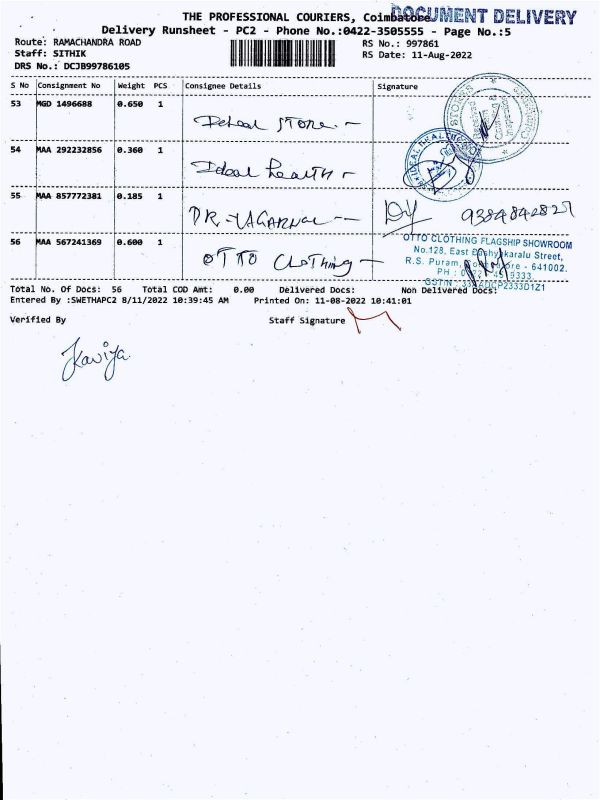 THE PROFESSIONAL COURIERS, Coimbatore
DOCUMENT DELIVERY
Delivery Runsheet - PC2 - Phone No.:0422-3505555 - Page No.:5
Route: RAMACHANDRA ROAD
RS No.: 997861
Staff: SITHIK
RS Date: 11-Aug-2022
DRS No.: DCJB99786105
S No Consignment No Weight PCS Consignee Details Signature
53 MGD 1496688 0.650 1
STORE
STORES
54 MAA 292232856 0.360 1
Ideal Health
55 MAA 857772381 0.185 1
DR.
9384842827
56 MAA 567241369 0.600 1
OTTO Clothing
OTTO CLOTHING FLAGSHIP SHOWROOM
No.128, East Street,
R.S. Puram, - 641002.
PH :
GSTIN
Total No. Of Docs: 56 Total COD Amt: 0.00 Delivered Docs: Non Delivered Docs:
Entered By :SWETHAPC2 8/11/2022 10:39:45 AM Printed On: 11-08-2022 10:41:01
Verified By Staff Signature
Kaviya